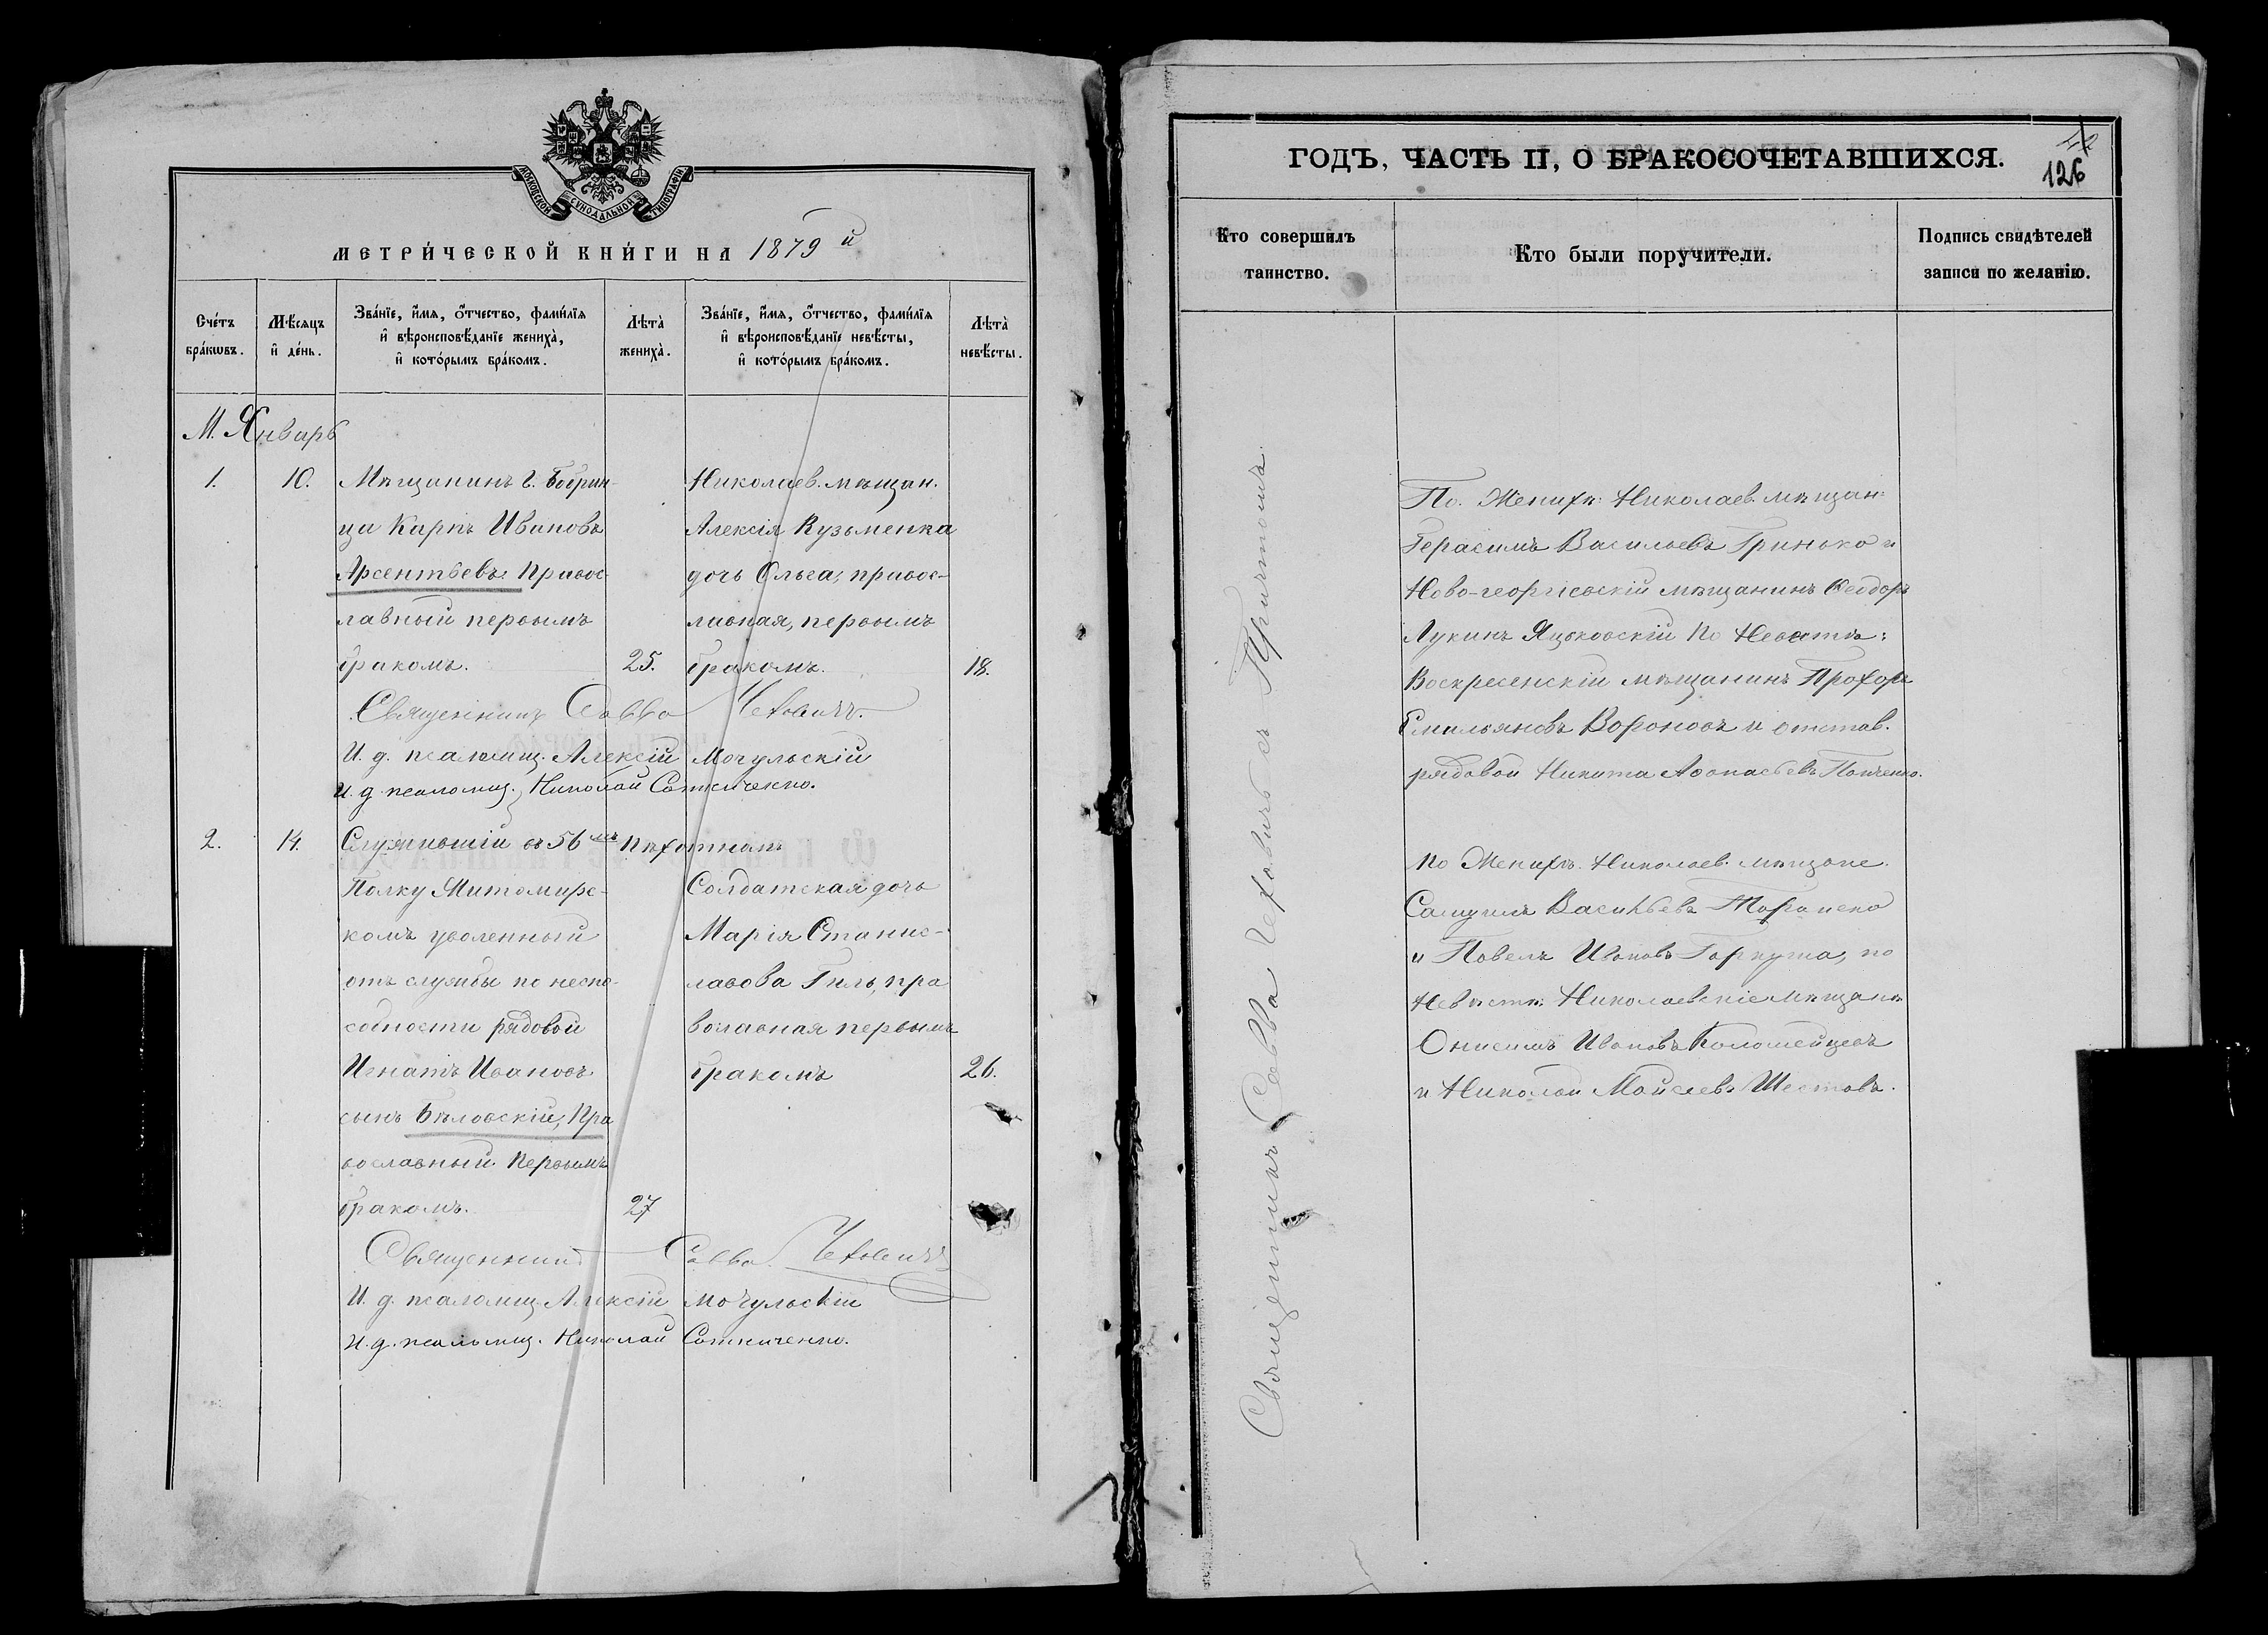 МОСКОВСКОЙ СѴНОДАЛЬНОЙ ТИПОГРАФІИ
МЕТРИ́ЧЕСКОЙ КНИ́ГИ НА 1879 й
Счéтъ бра́кѡвъ.
Мѣ́сяцъ и҆ де́нь.
Зва́нїе, и҆́мѧ, ѻ҆́тчество, фами́лїѧ и҆ вѣроисповѣ́данїе жениха̀, и҆ кото́рымъ бра́комъ.
Лѣта̀ жениха̀.
Зва́нїе, и҆́мѧ, ѻ҆́тчество, фами́лїѧ и҆ вѣроисповѣ́данїе невѣ́сты, и҆ кото́рымъ бра́комъ.
Лѣта̀ невѣ́сты.
М. Январь
1.
10.
Мѣщанинъ г. Бобрин-
ца Карпъ Ивановъ
Арсентьевъ, Правос-
лавный первымъ
бракомъ.
25.
Николаев. мѣщан.
Алексія Кузьменка
дочь Ольга, правос-
лавная, первымъ
бракомъ.
18.
Священникъ Савва Чеховичъ.
И. д. псаломщ. Алексій Мочульскій
И. д. псаломщ. Николай Сотниченко.
2.
14.
Служившій въ 56мъ Пѣхотномъ
Полку Житомирс-
комъ уволенный
отъ службы по неспо-
собности рядовой
Игнатъ Ивановъ
сынъ Бѣловскій, Пра
вославный Первымъ
бракомъ.
27
Солдатская дочь
Марія Станис-
лавова Гиль, пра
вославная первымъ
бракомъ
26.
Священникъ Савва Чеховичъ
И. д. псаломщ. Алексій Мочульскій
И. д. псаломщ. Николай Сотниченко.
ГОДЪ, ЧАСТЬ II, О БРАКОСОЧЕТАВШИХСЯ.
126
Кто совершилъ таинство.
Кто были поручители.
Подпись свидѣтелей записи по желанію.
Священникъ Савва Чеховичъ съ Причтомъ
По Женихѣ: Николаев. мѣщан:
Герасимъ Васильевъ Гринько и
Ново-георгіевскій мѣщанинъ Ѳеодоръ
Лукинъ Яцьковскій По Невѣстѣ:
Воскресенскій мѣщанинъ Прохоръ
Емильяновъ Вороновъ и отстав.
рядовой Никита Аѳонасьевъ Панченко.
По Женихѣ. Николаев. мѣщане.
Самуилъ Васильевъ
и Павелъ Ивановъ Гаркуша, по
Невѣстѣ: Николаевскіе мѣщане
Онисимъ Ивановъ Коломейцевъ
и Николай Моисеевъ Шестовъ.